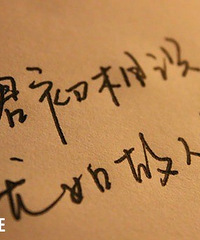 君初相识
犹如故人
E